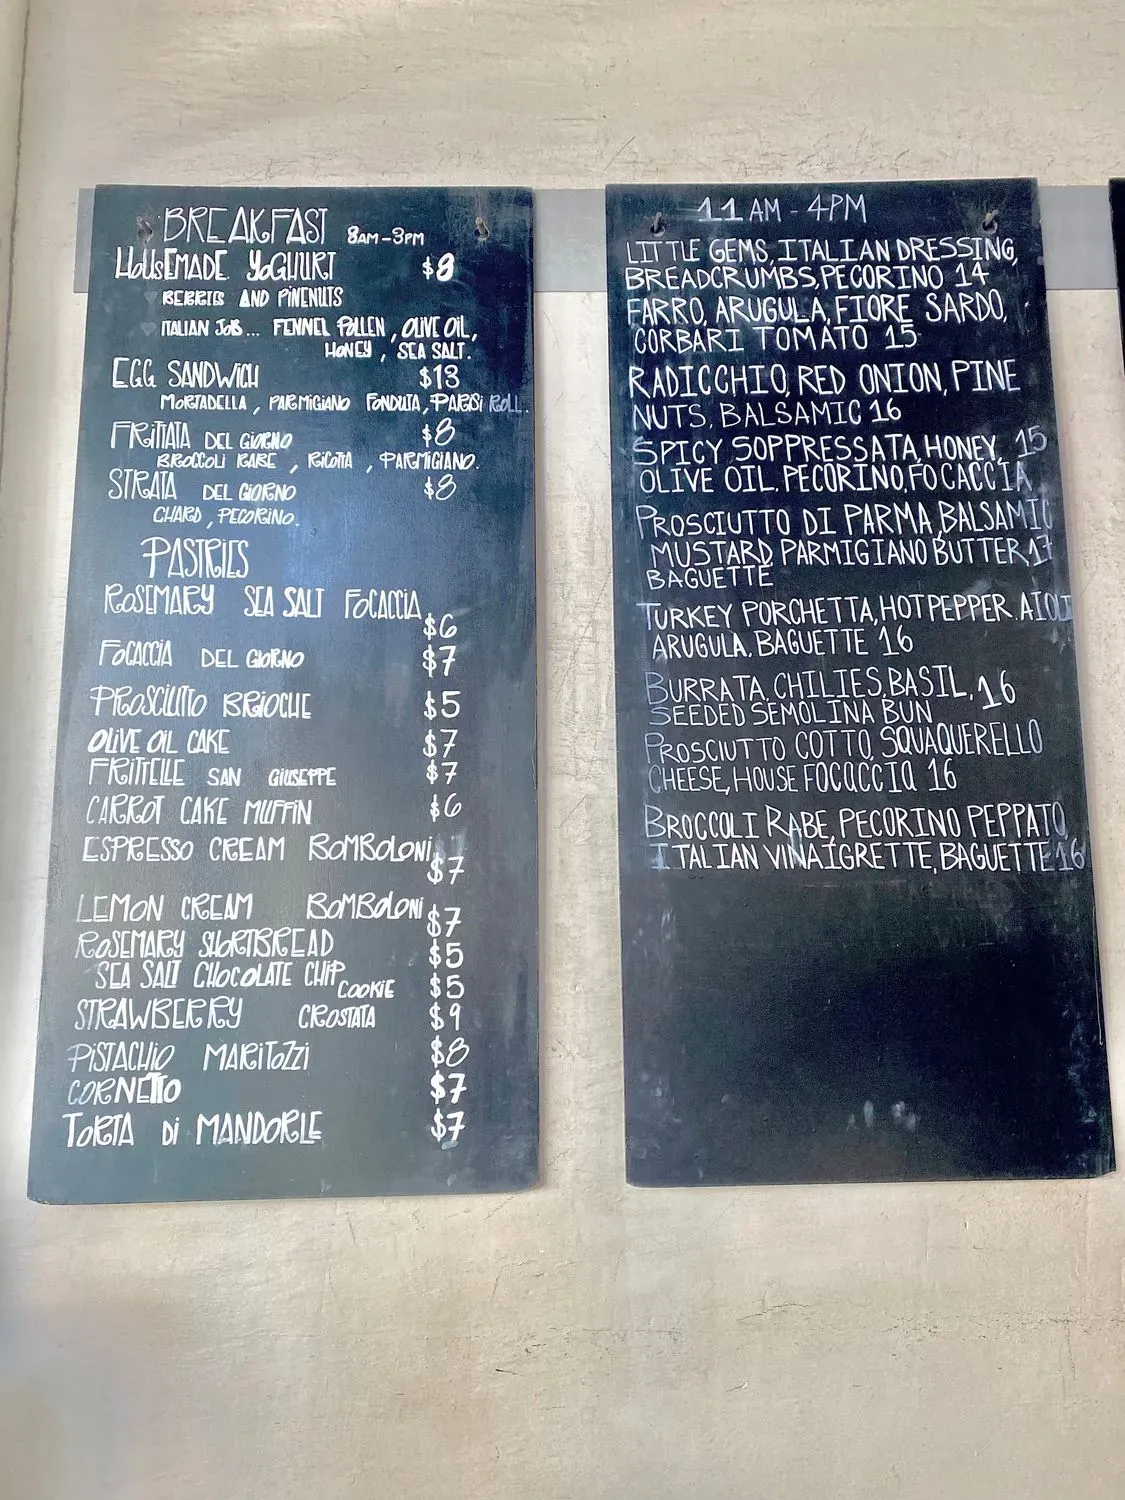 BREAKFAST 8AM-3PM
HOUSEMADE YOGHURT $8
BERRIES AND PINENUTS
ITALIAN JOB... FENNEL POLLEN, OLIVE OIL,
HONEY, SEA SALT.
EGG SANDWICH $13
MORTADELLA, PARMIGIANO FONDUTA, PARISI ROLL.
FRITTATA DEL GIORNO $8
BROCCOLI RABE, RICOTTA, PARMIGIANO.
STRATA DEL GIORNO $8
CHARD, PECORINO.
PASTRIES
ROSEMARY SEA SALT FOCACCIA
$6
FOCACCIA DEL GIORNO $7
PROSCIUTTO BRIOCHE $5
OLIVE OIL CAKE $7
FRITTELLE SAN GIUSEPPE $7
CARROT CAKE MUFFIN $6
ESPRESSO CREAM BOMBOLONI
$7
LEMON CREAM BOMBOLONI $7
ROSEMARY SHORTBREAD $5
SEA SALT CHOCOLATE CHIP
COOKIE $5
STRAWBERRY CROSTATA $9
PISTACHIO MARITOZZI $8
CORNETTO $7
TORTA DI MANDORLE $7
11 AM - 4PM
LITTLE GEMS, ITALIAN DRESSING,
BREADCRUMBS, PECORINO 14
FARRO, ARUGULA, FIORE SARDO,
CORBARI TOMATO 15
RADICCHIO, RED ONION, PINE
NUTS, BALSAMIC 16
SPICY SOPPRESSATA, HONEY, 15
OLIVE OIL, PECORINO, FOCACCIA
PROSCIUTTO DI PARMA, BALSAMIC
MUSTARD PARMIGIANO BUTTER, 17
BAGUETTE
TURKEY PORCHETTA, HOT PEPPER AIOLI
ARUGULA, BAGUETTE 16
BURRATA, CHILIES, BASIL, 16
SEEDED SEMOLINA BUN
PROSCIUTTO COTTO, SQUAQUERELLO
CHEESE, HOUSE FOCUCCIA 16
BROCCOLI RABE, PECORINO PEPPATO,
ITALIAN VINAIGRETTE, BAGUETTE 16